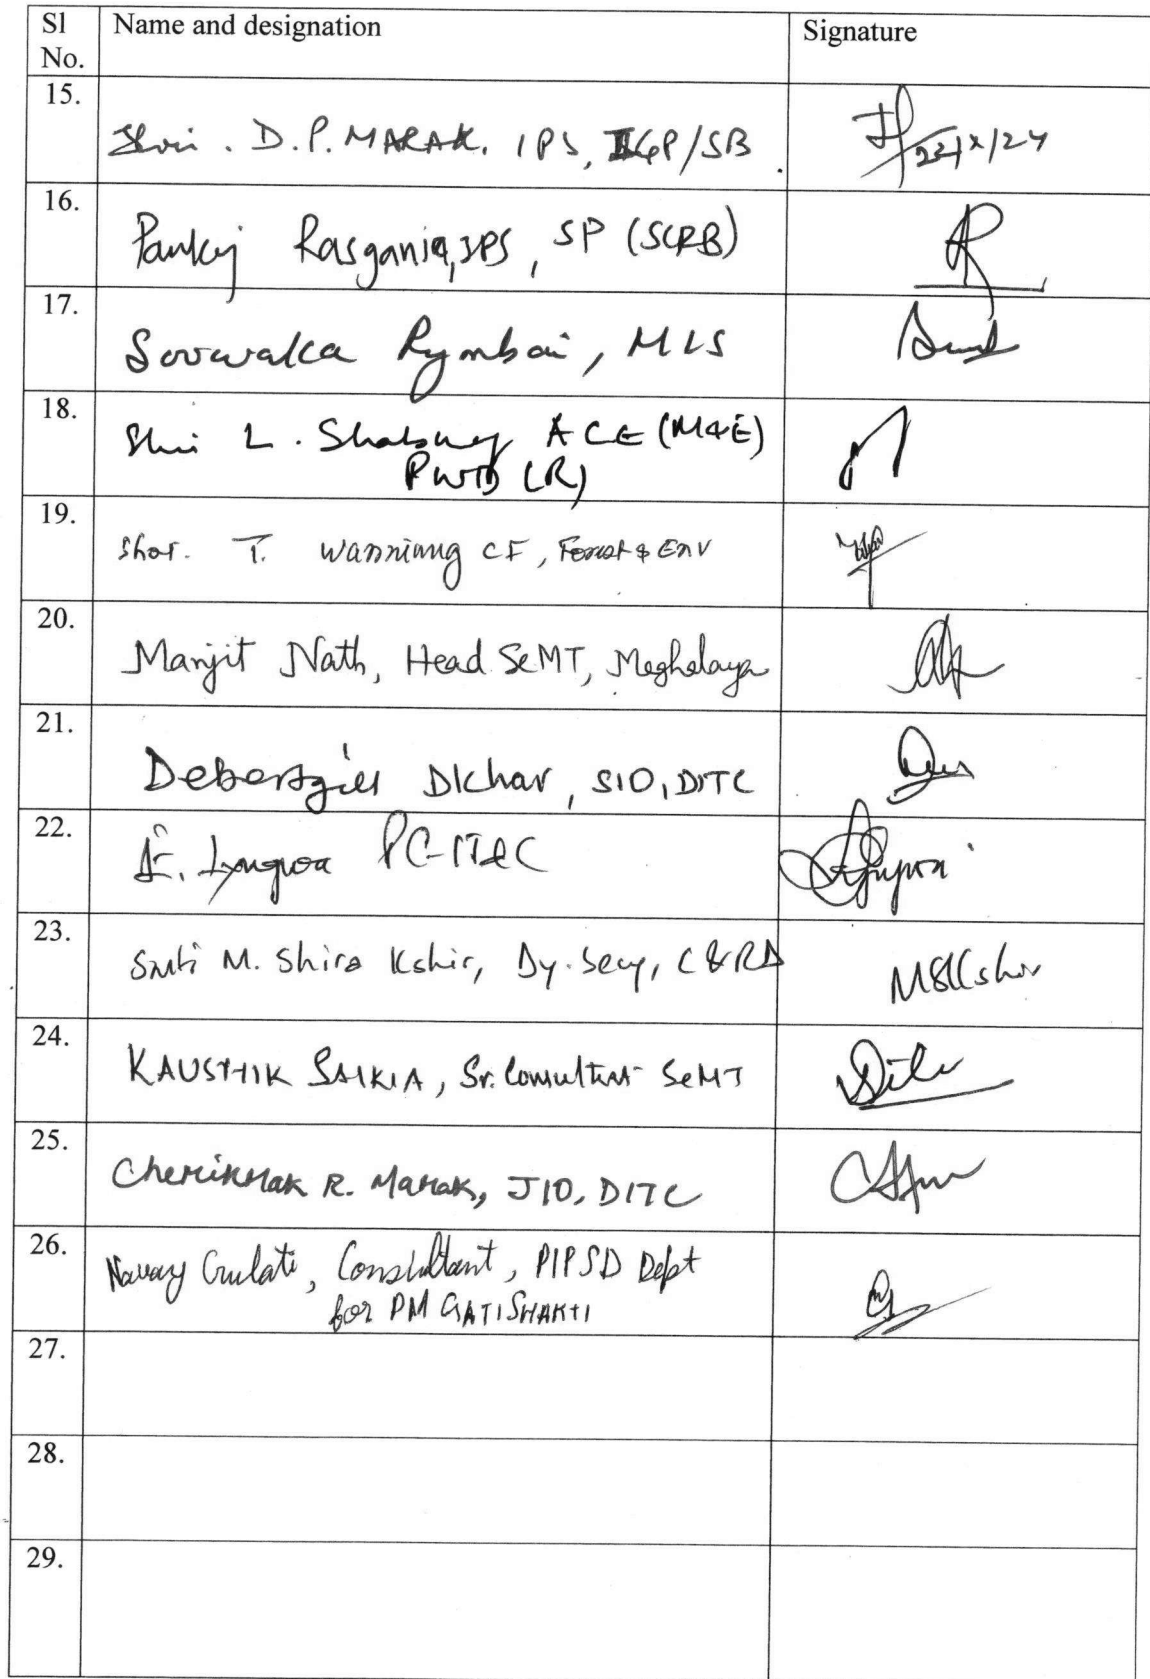 Sl No. Name and designation Signature
15. Shri. D.P. MARAK. IPS, IGP/SB. 22/X/24
16. Pankaj Rasgania, IPS, SP (SCRB)
17. Rymbai, MLS
18. Shri L. ACE (M&E)
PWD (R)
19. T. Wanniang CF, Forest & Env
20. Manjit Nath, Head SeMT, Meghalaya
21. Dkhar, SIO, DITC
22. Lyngwa
23. Smti M. Shira Kshir, Dy. Secy, C&RD
24. KAUSTHIK SAIKIA, Sr. Consultant SeMT
25. R. Marak, JIO, DITC
26. Gulati, Consultant, PIPSD Dept
for PM GATISHAKTI
27.
28.
29.